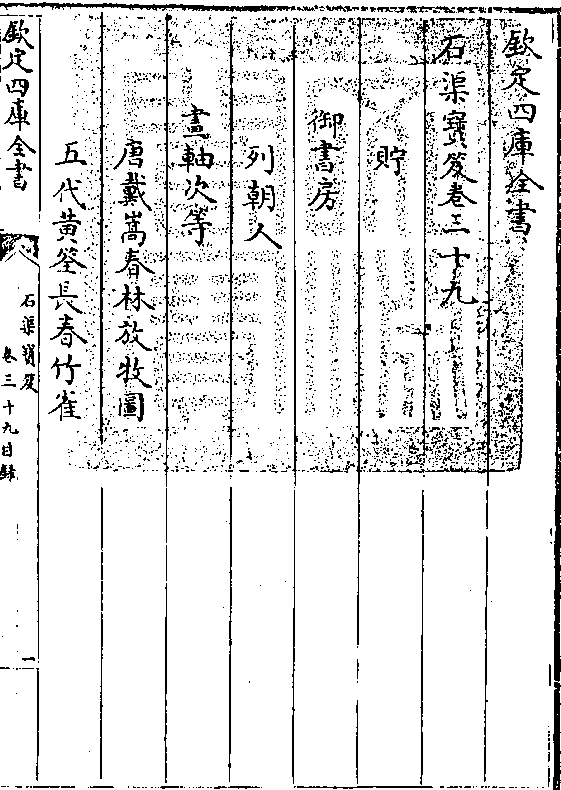 欽定四庫全書
石渠寳笈卷三十九
貯
御書房
列朝人
畫軸次等
唐戴嵩春林放牧圖
五代黄筌長春竹雀
欽定四庫全書
石渠寳笈
卷三十九目録
一